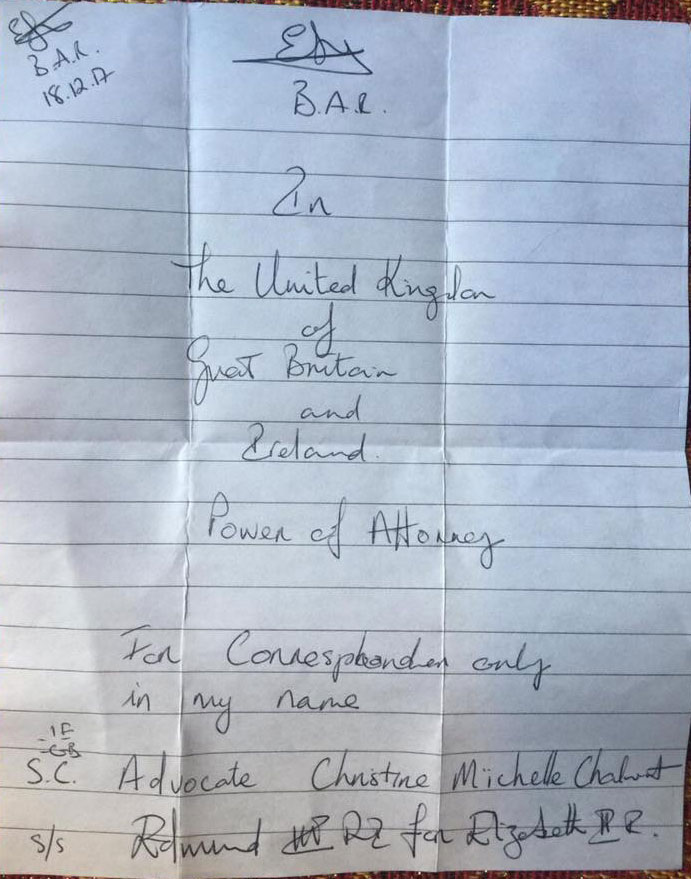 B.A.R.
18.12.17
B.A.R.
In
The United Kingdom
of
Great Britain
and
Ireland.
Power of Attorney
For Correspondence only
in my name
S.C. Advocate Christine Michelle
s/s Edmund for Elizabeth II R.